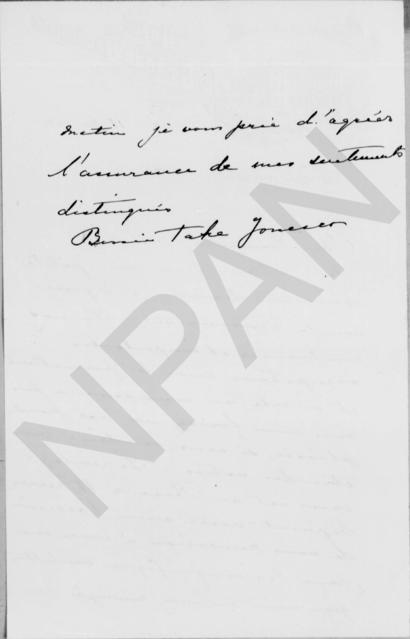 matin je vous prie d'agréer
l'assurance de mes sentiments
distingués
Bessie Take Jonesco
NPAN